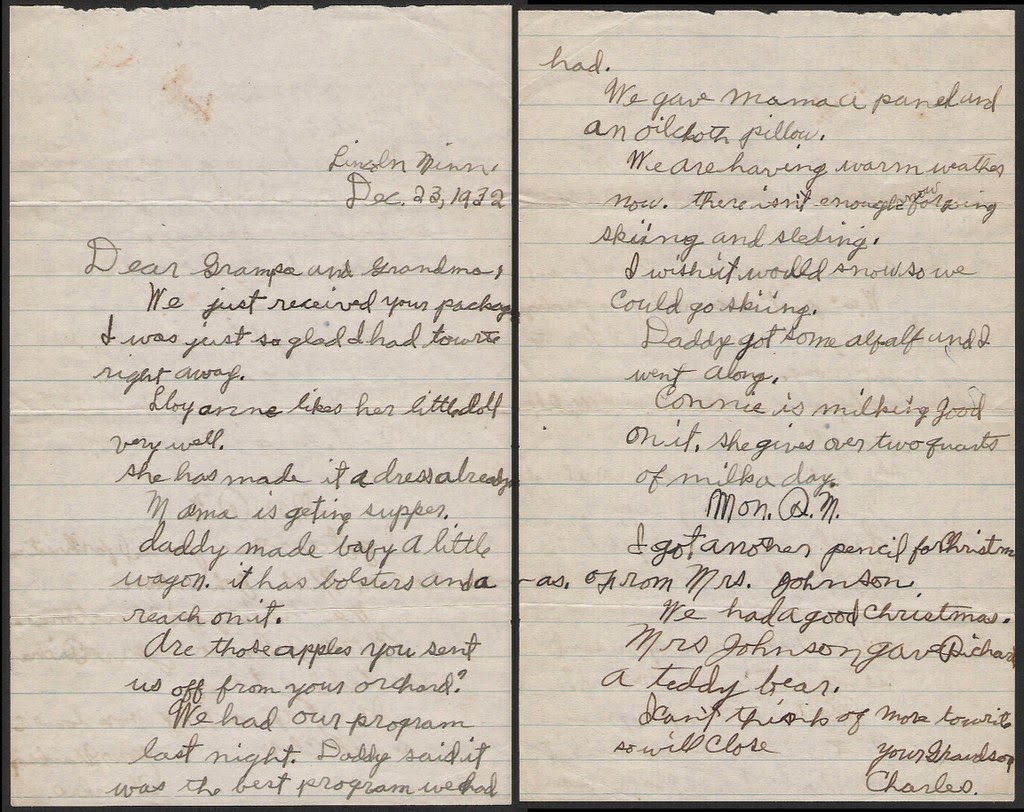 Lincoln Minn.
Dec. 23, 1932
Dear Grampa and Grandma,
We just received your package
I was just so glad I had to write
right away.
Lloyanne likes her little doll
very well.
she has made it a dress already
Mama is geting supper.
daddy made baby a little
wagon. it has bolsters and a
reach on it.
Are those apples you sent
us off from your orchard?
We had our program
last night. Daddy said it
was the best program we had
had.
We gave mama a panel and
an oilcloth pillow.
We are having warm weather
now. there isn't enough snow for
skiing and sleding.
I wish it would snow so we
could go skiing.
Daddy got some alfalf and I
went along.
Connie is milking good
on it. she gives over two quarts
of milk a day.
Mon. P.M.
I got another pencil for Christm
-as. from Mrs. Johnson.
We had a good Christmas.
Mrs Johnson gave Richard
a teddy bear.
I can't think of more to write
so will close your Grandson
Charles.